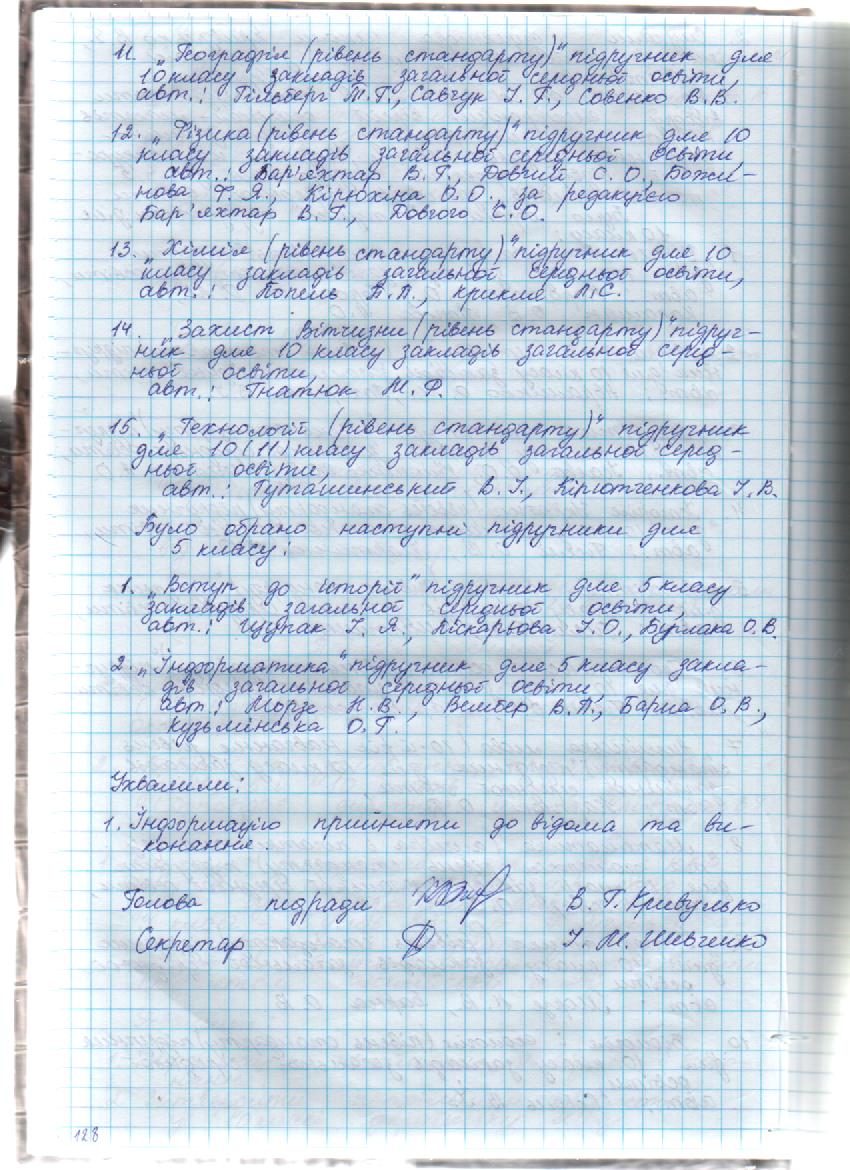 11. „Географія (рівень стандарту)“ підручник для
10 класу закладів загальної середньої освіти,
авт.: Гільберг Т.Г., Савчук І.Г., Совенко В.В.
12. „Фізика (рівень стандарту)“ підручник для 10
класу закладів загальної середньої освіти,
авт.: Бар'яхтар В.Г., Довгий С.О., Божи-
нова Ф.Я., Кірюхіна О.О. за редакцією
Бар'яхтар В.Г., Довгого С.О.
13. „Хімія (рівень стандарту)“ підручник для 10
класу закладів загальної середньої освіти,
авт.: Попель П.П., Крикля Л.С.
14. „Захист Вітчизни (рівень стандарту)“ підруч-
ник для 10 класу закладів загальної серед-
ньої освіти,
авт.: Гнатюк М.Ф.
15. „Технології (рівень стандарту)“ підручник
для 10 (11) класу закладів загальної серед-
ньої освіти,
авт.: Туташинський В.І., Кірютченкова І.В.
Було обрано наступні підручники для
5 класу:
1. „Вступ до історії“ підручник для 5 класу
закладів загальної середньої освіти,
авт.: Щупак І.Я., Піскарьова І.О., Бурлака О.В.
2. „Інформатика“ підручник для 5 класу закла-
дів загальної середньої освіти,
авт.: Морзе Н.В., Вембер В.П., Барна О.В.,
Кузьмінська О.Г.
Ухвалили:
1. Інформацію прийняти до відома та ви-
конання.
Голова педради В.Г. Кривулько
Секретар І.М. Шевченко
128